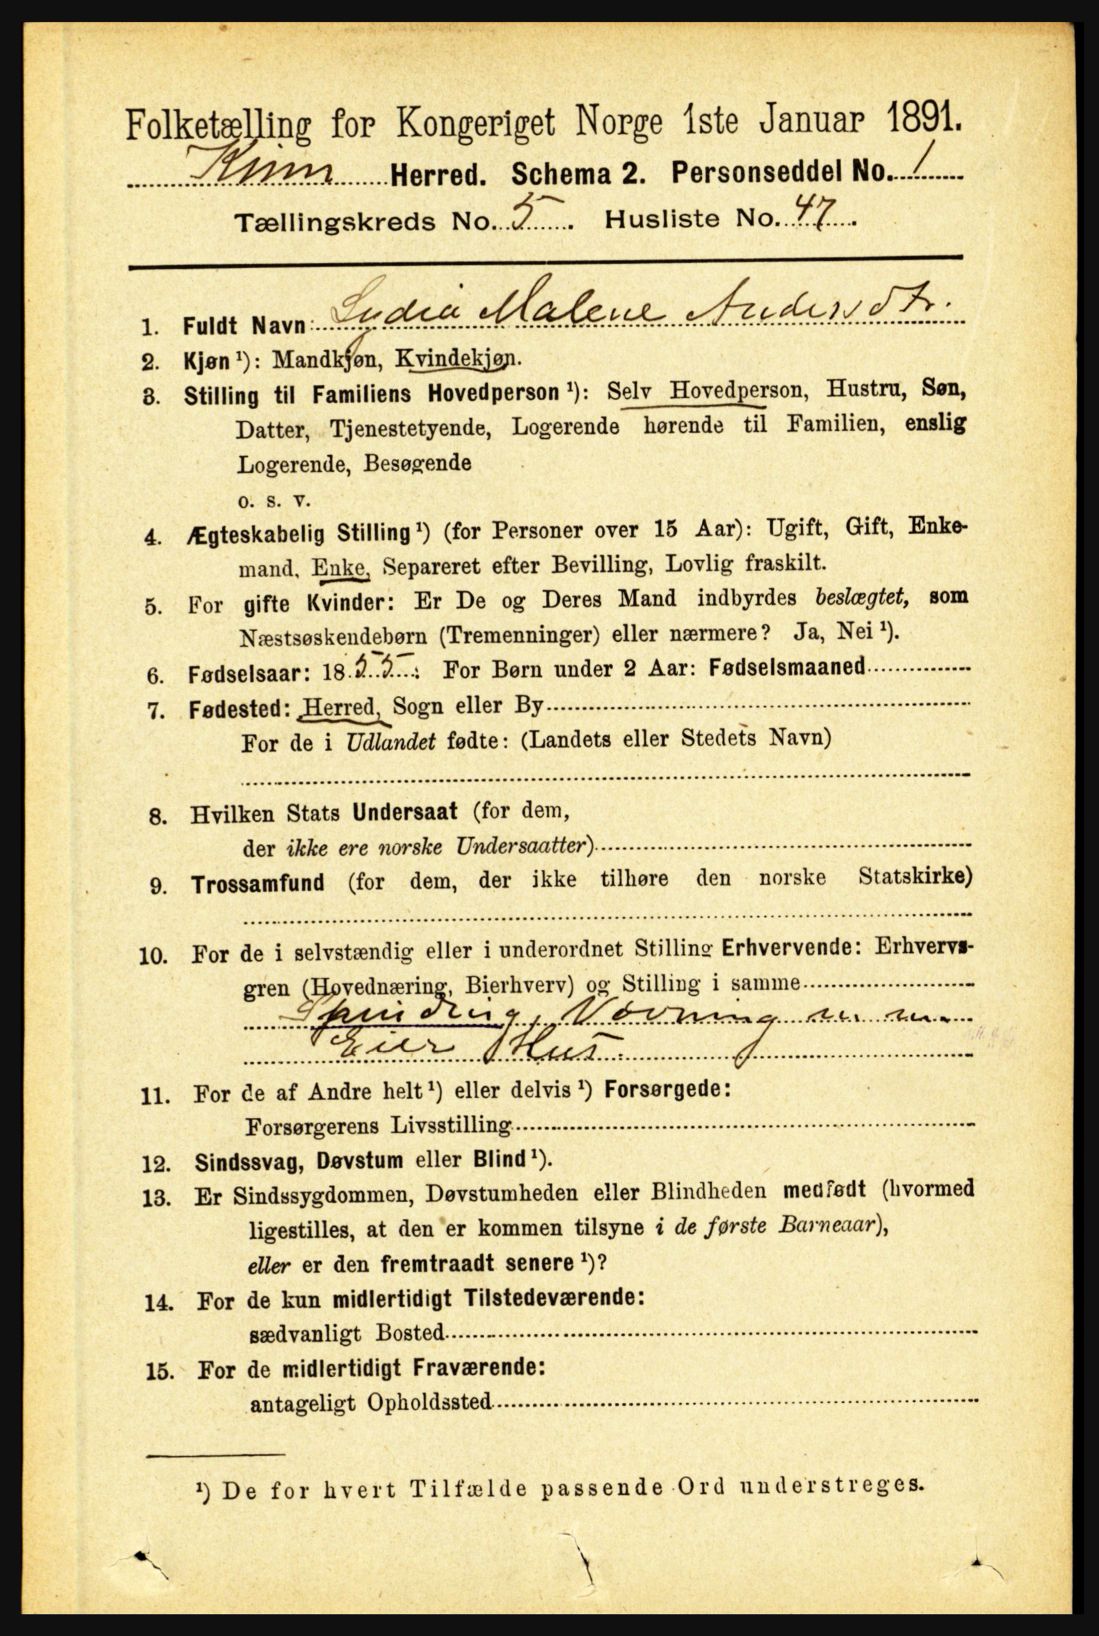 Folketælling for Kongeriget Norge 1ste Januar 1891.
Kinn Herred. Schema 2. Personseddel No. 1
Tællingskreds No. 5. Husliste No. 47.
1. Fuldt Navn: Lydia Malene Andersdtr.
2. Kjøn ¹): Mandkjøn, Kvindekjøn.
3. Stilling til Familiens Hovedperson ¹): Selv Hovedperson, Hustru, Søn,
Datter, Tjenestetyende, Logerende hørende til Familien, enslig
Logerende, Besøgende
o. s. v.
4. Ægteskabelig Stilling ¹) (for Personer over 15 Aar): Ugift, Gift, Enke-
mand, Enke, Separeret efter Bevilling, Lovlig fraskilt.
5. For gifte Kvinder: Er De og Deres Mand indbyrdes beslægtet, som
Næstsøskendebørn (Tremenninger) eller nærmere? Ja, Nei ¹).
6. Fødselsaar: 1855: For Børn under 2 Aar: Fødselsmaaned
7. Fødested: Herred, Sogn eller By
For de i Udlandet fødte: (Landets eller Stedets Navn)
8. Hvilken Stats Undersaat (for dem,
der ikke ere norske Undersaatter)
9. Trossamfund (for dem, der ikke tilhøre den norske Statskirke)
10. For de i selvstændig eller i underordnet Stilling Erhvervende: Erhvervs-
gren (Hovednæring, Bierhverv) og Stilling i samme
Spinding, Vævning m m.
Eier Hus.
11. For de af Andre helt ¹) eller delvis ¹) Forsørgede:
Forsørgerens Livsstilling
12. Sindssvag, Døvstum eller Blind ¹).
13. Er Sindssygdommen, Døvstumheden eller Blindheden medfødt (hvormed
ligestilles, at den er kommen tilsyne i de første Barneaar),
eller er den fremtraadt senere ¹)?
14. For de kun midlertidigt Tilstedeværende:
sædvanligt Bosted
15. For de midlertidigt Fraværende:
antageligt Opholdssted
¹) De for hvert Tilfælde passende Ord understreges.